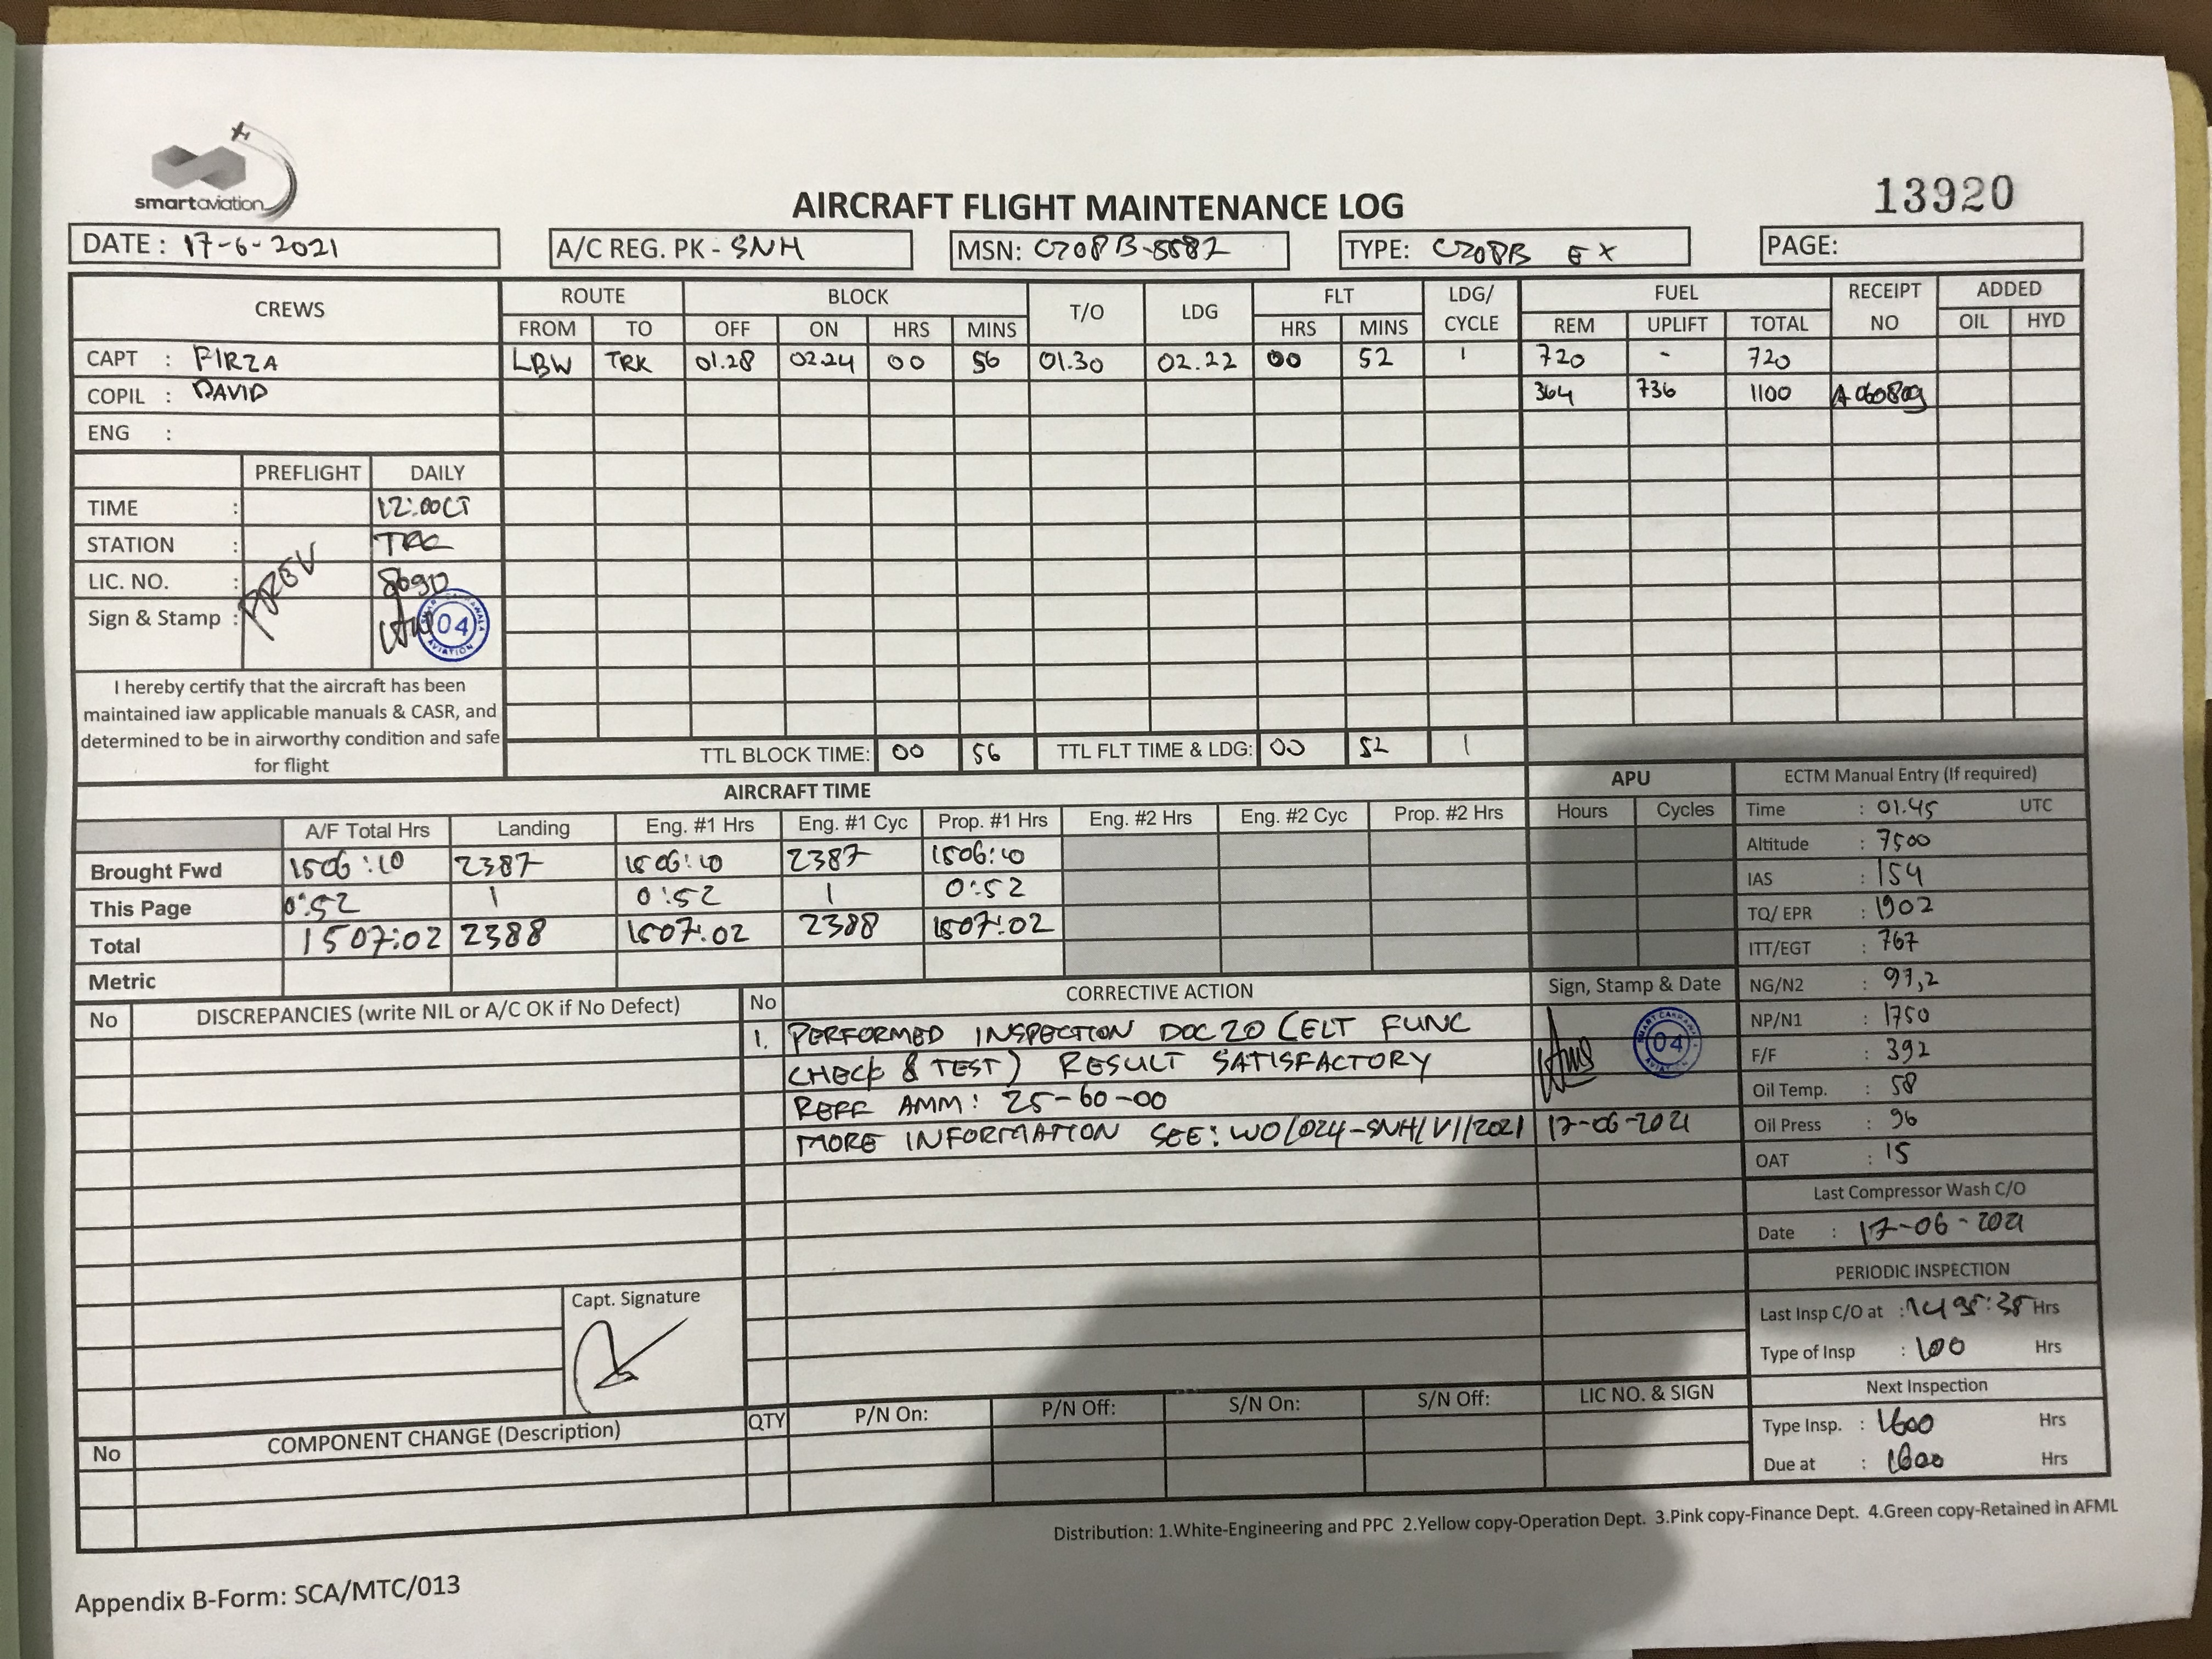 smartaviation
AIRCRAFT FLIGHT MAINTENANCE LOG
13920
DATE : 17-6-2021 A/C REG. PK - SNH MSN: C208B-5582 TYPE: C208B EX PAGE:
CREWS ROUTE BLOCK T/O LDG FLT LDG/ CYCLE FUEL RECEIPT NO ADDED
FROM TO OFF ON HRS MINS HRS MINS REM UPLIFT TOTAL OIL HYD
CAPT : FIRZA LBW TRK 01.28 02.24 00 56 01.30 02.22 00 52 1 720 - 720
COPIL : DAVID 364 736 1100 A060809
ENG :
PREFLIGHT DAILY
TIME : 12:00CT
STATION :
LIC. NO. : 8090
Sign & Stamp :
04
AVIATION
I hereby certify that the aircraft has been
maintained iaw applicable manuals & CASR, and
determined to be in airworthy condition and safe
for flight
TTL BLOCK TIME: 00 56 TTL FLT TIME & LDG: 00 52 1
AIRCRAFT TIME APU ECTM Manual Entry (If required)
A/F Total Hrs Landing Eng. #1 Hrs Eng. #1 Cyc Prop. #1 Hrs Eng. #2 Hrs Eng. #2 Cyc Prop. #2 Hrs Hours Cycles
Brought Fwd 1506:10 2387 1506:10 2387 1506:10
This Page 0:52 1 0:52 1 0:52
Total 1507:02 2388 1507:02 2388 1507:02
Metric
Time : 01.45 UTC
Altitude : 7500
IAS : 154
TQ/ EPR : 1902
ITT/EGT : 767
NG/N2 : 97,2
NP/N1 : 1750
F/F : 392
Oil Temp. : 58
Oil Press : 96
OAT : 15
Last Compressor Wash C/O
Date : 17-06-2021
PERIODIC INSPECTION
Last Insp C/O at : 1495:35 Hrs
Type of Insp : 100 Hrs
Next Inspection
Type Insp. : 1600 Hrs
Due at : 1600 Hrs
No DISCREPANCIES (write NIL or A/C OK if No Defect) No CORRECTIVE ACTION Sign, Stamp & Date
1. PERFORMED INSPECTION DOC 20 (ELT FUNC
CHECK & TEST) RESULT SATISFACTORY
REFF AMM: 25-60-00
MORE INFORMATION SEE: WO/024-SNH/VI/2021 17-06-2021
04
Capt. Signature
No COMPONENT CHANGE (Description) QTY P/N On: P/N Off: S/N On: S/N Off: LIC NO. & SIGN
Distribution: 1.White-Engineering and PPC 2.Yellow copy-Operation Dept. 3.Pink copy-Finance Dept. 4.Green copy-Retained in AFML
Appendix B-Form: SCA/MTC/013